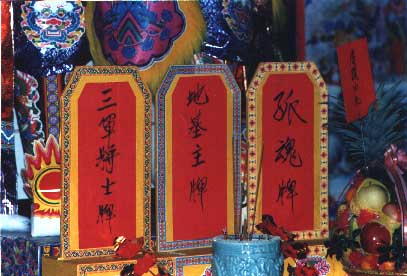 三軍將士牌
地基主牌
孤魂牌